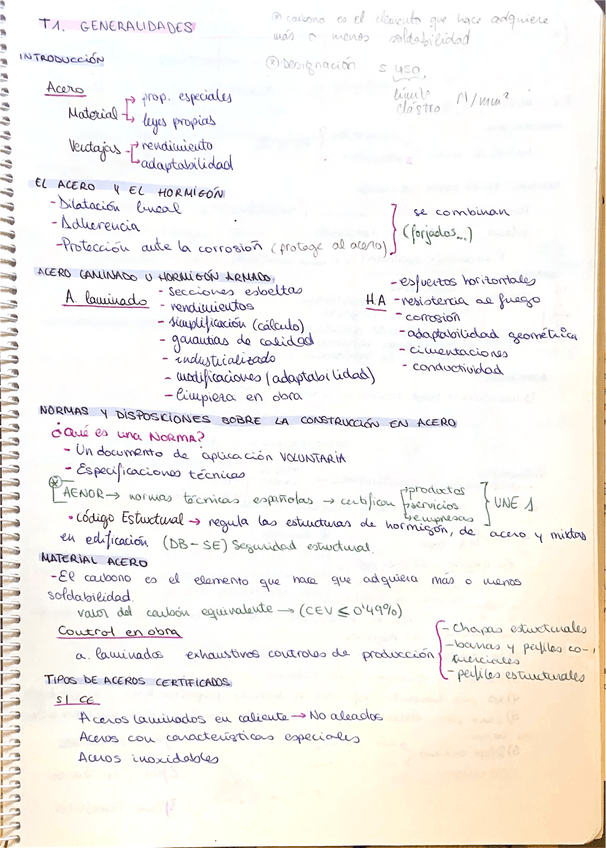 T1. GENERALIDADES
carbono es el elemento que hace adquiere
más o menos soldabilidad
INTRODUCCIÓN
Designación S
límite
elástico N/mm²
Acero
Material → prop. especiales
→ leyes propias
Ventajas → rendimiento
→ adaptabilidad
EL ACERO Y EL HORMIGÓN
- Dilatación lineal
- Adherencia
- Protección ante la corrosión (protege al acero)
se combinan
(forjados...)
ACERO LAMINADO U HORMIGÓN ARMADO
A. laminado - Secciones esbeltas
- rendimientos
- simplificación (cálculo)
- garantías de calidad
- industrializado
- modificaciones (adaptabilidad)
- limpieza en obra
- esfuerzos horizontales
HA - resistencia al fuego
- corrosión
- adaptabilidad geométrica
- cimentaciones
- conductividad
NORMAS Y DISPOSICIONES SOBRE LA CONSTRUCCIÓN EN ACERO
¿Qué es una NORMA?
- Un documento de aplicación VOLUNTARIA
- Especificaciones técnicas
AENOR → normas técnicas españolas → certifican productos
servicios
empresas
UNE
• Código Estructural → regula las estructuras de hormigón, de acero y mixtas
en edificación (DB-SE) Seguridad estructural.
MATERIAL ACERO
- El carbono es el elemento que hace que adquiera más o menos
soldabilidad.
valor del carbón equivalente → (CEV ≤ 0'49%)
Control en obra
a. laminados exhaustivos controles de producción
- chapas estructurales
- barras y perfiles co-
merciales
- perfiles estructurales
TIPOS DE ACEROS CERTIFICADOS
S/ CE
Aceros laminados en caliente → No aleados
Aceros con características especiales
Aceros inoxidables